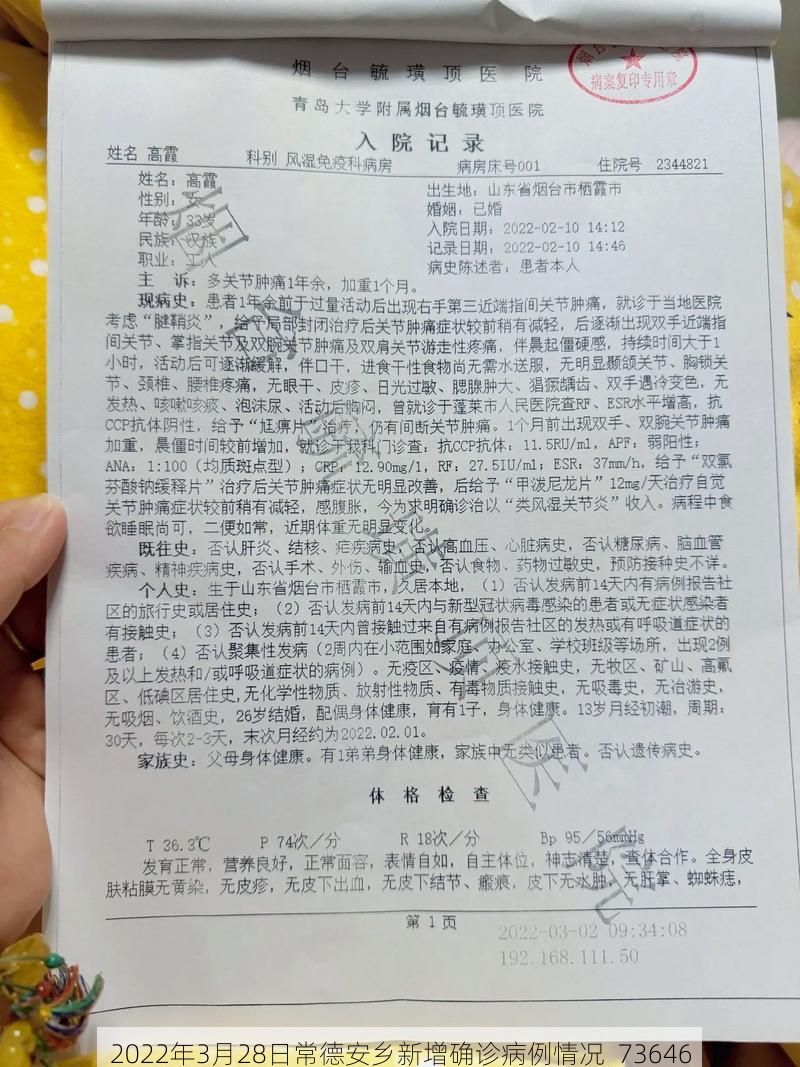 烟台毓璜顶医院
病案复印专用章
青岛大学附属烟台毓璜顶医院
入院记录
姓名 高霞 科别 风湿免疫科病房 病房床号001 住院号 2344821
姓名：高霞 出生地：山东省烟台市栖霞市
性别：女 婚姻：已婚
年龄：33岁 入院日期：2022-02-10 14:12
民族：汉族 记录日期：2022-02-10 14:46
职业：工人 病史陈述者：患者本人
主 诉：多关节肿痛1年余，加重1个月。
现病史：患者1年余前于过量活动后出现右手第三近端指间关节肿痛，就诊于当地医院
考虑“腱鞘炎”，给予局部封闭治疗后关节肿痛症状较前稍有减轻，后逐渐出现双手近端指
间关节、掌指关节及双腕关节肿痛及双肩关节游走性疼痛，伴晨起僵硬感，持续时间大于1
小时，活动后可逐渐缓解，伴口干，进食干性食物尚无需水送服，无明显颞颌关节、胸锁关
节、颈椎、腰椎疼痛，无眼干、皮疹、日光过敏、腮腺肿大、猖獗龋齿、双手遇冷变色，无
发热、咳嗽咳痰、泡沫尿、活动后胸闷，曾就诊于蓬莱市人民医院查RF、ESR水平增高，抗
CCP抗体阴性，给予“尪痹片”治疗，仍有间断关节肿痛。1个月前出现双手、双腕关节肿痛
加重，晨僵时间较前增加，就诊于我科门诊查：抗CCP抗体：11.5RU/ml，APF：弱阳性；
ANA：1:100（均质斑点型）；CRP：12.90mg/l，RF：27.5IU/ml；ESR：37mm/h，给予“双氯
芬酸钠缓释片”治疗后关节肿痛症状无明显改善，后给予“甲泼尼龙片”12mg/天治疗自觉
关节肿痛症状较前稍有减轻，感腹胀，今为求明确诊治以“类风湿关节炎”收入。病程中食
欲睡眠尚可，二便如常，近期体重无明显变化。
既往史：否认肝炎、结核、疟疾病史，否认高血压、心脏病史，否认糖尿病、脑血管
疾病、精神疾病史，否认手术、外伤、输血史，否认食物、药物过敏史，预防接种史不详。
个人史：生于山东省烟台市栖霞市，久居本地，（1）否认发病前14天内有病例报告社
区的旅行史或居住史；（2）否认发病前14天内与新型冠状病毒感染的患者或无症状感染者
有接触史；（3）否认发病前14天内曾接触过来自有病例报告社区的发热或有呼吸道症状的
患者；（4）否认聚集性发病（2周内在小范围如家庭、办公室、学校班级等场所，出现2例
及以上发热和/或呼吸道症状的病例）。无疫区、疫情、疫水接触史，无牧区、矿山、高氟
区、低碘区居住史，无化学性物质、放射性物质、有毒物质接触史，无吸毒史，无冶游史，
无吸烟、饮酒史，26岁结婚，配偶身体健康，育有1子，身体健康。13岁月经初潮，周期：
30天，每次2-3天，末次月经约为2022.02.01。
家族史：父母身体健康。有1弟弟身体健康，家族中无类似患者。否认遗传病史。
体格检查
T 36.3℃ P 74次/分 R 18次/分 Bp 95/56mmHg
发育正常，营养良好，正常面容，表情自如，自主体位，神志清楚，查体合作。全身皮
肤粘膜无黄染，无皮疹，无皮下出血，无皮下结节、瘢痕，皮下无水肿，无肝掌、蜘蛛痣，
第 1 页
2022-03-02 09:34:08
192.168.111.50
2022年3月28日常德安乡新增确诊病例情况 73646